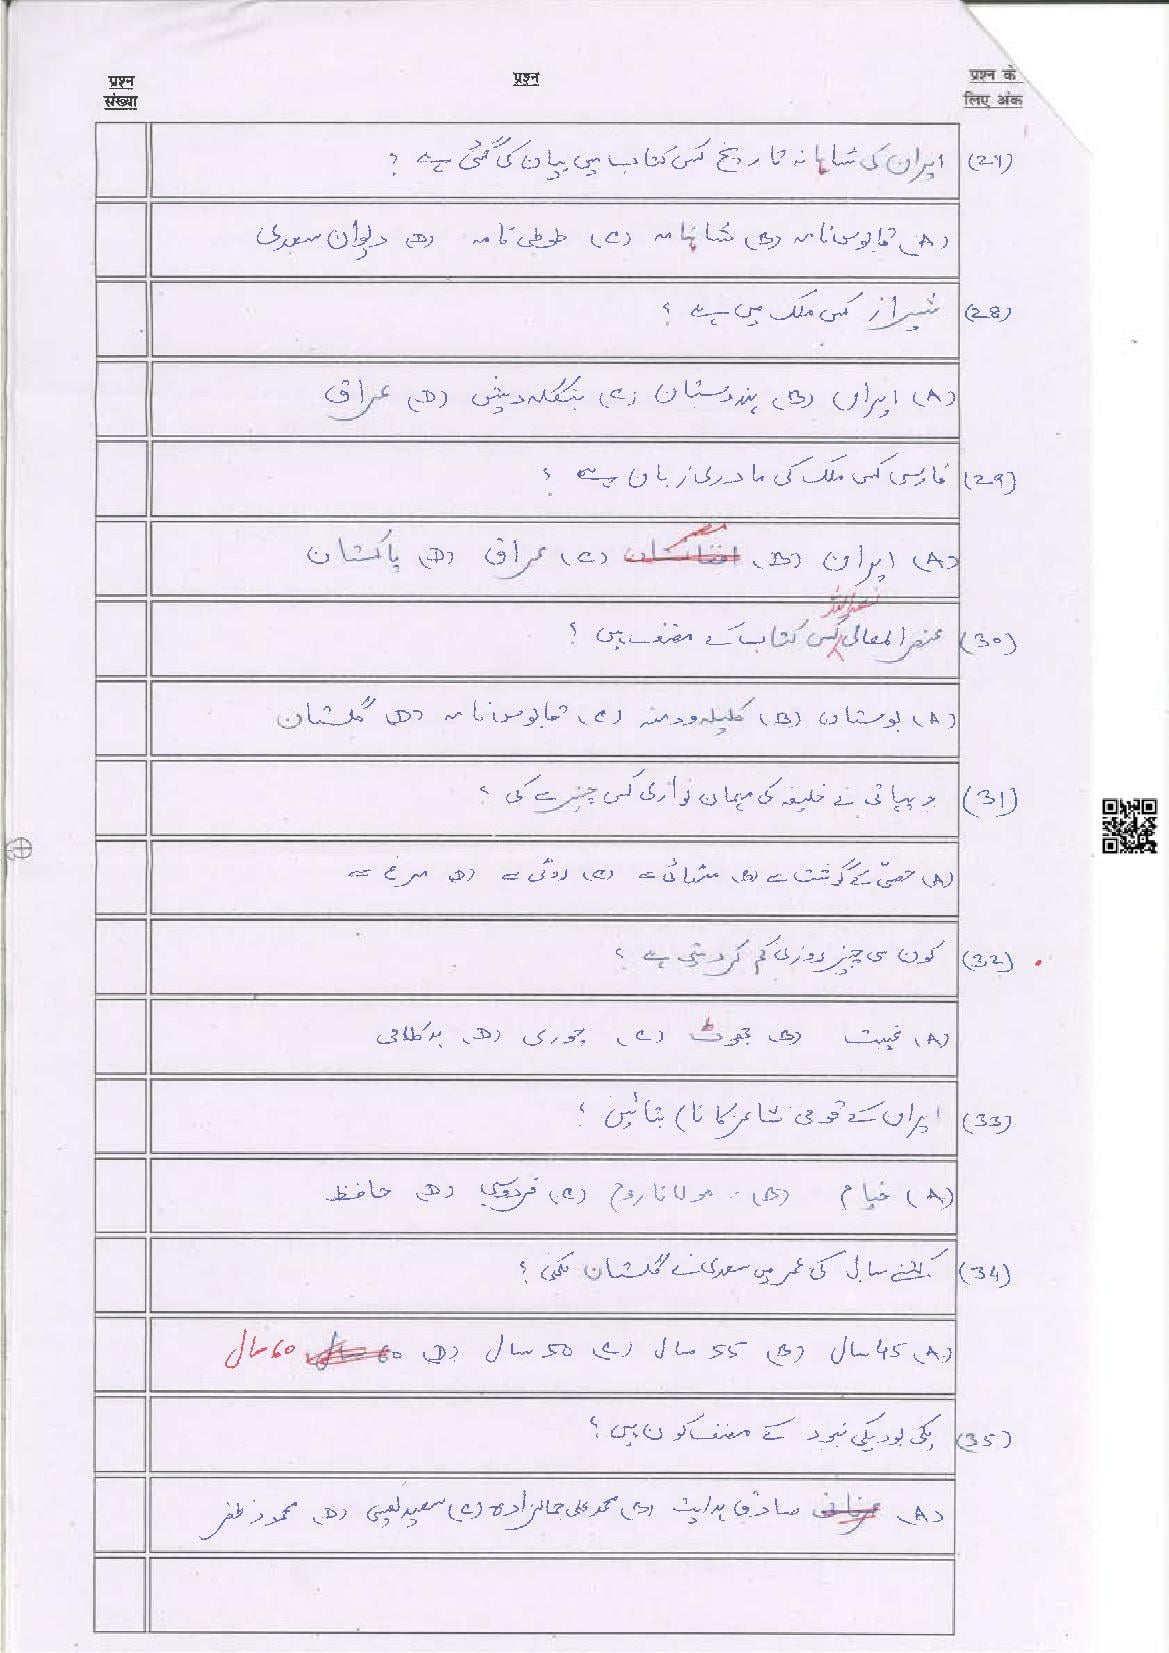 प्रश्न संख्या
प्रश्न
प्रश्न के लिए अंक
(27) ایران کی شاہانہ تاریخ کس کتاب میں بیان کی گئی ہے ؟
(A) قابوس نامہ (B) شاہنامہ (C) طوطی نامہ (D) دیوان سعدی
(28) شیراز کس ملک میں ہے ؟
(A) ایران (B) ہندوستان (C) بنگلہ دیش (D) عراق
(29) فارسی کس ملک کی مادری زبان ہے ؟
(A) ایران (B) مصر (C) عراق (D) پاکستان
(30) عنصر المعالی کس کتاب کے مصنف ہیں ؟
(A) بوستان (B) کلیلہ ودمنہ (C) قابوس نامہ (D) گلستان
(31) دیہاتی نے خلیفہ کی مہمان نوازی کس چیز سے کی ؟
(A) کے گوشت سے (B) مٹھائی سے (C) روٹی سے (D) مرغ سے
(32) کون سی چیز روزی کم کر دیتی ہے ؟
(A) غیبت (B) جھوٹ (C) چوری (D) بدکلامی
(33) ایران کے قومی شاعر کا نام بتائیں ؟
(A) خیام (B) مولانا روم (C) فردوسی (D) حافظ
(34) کتنے سال کی عمر میں سعدی نے گلستان لکھی ؟
(A) 45 سال (B) 55 سال (C) 50 سال (D) 60 سال
(35) یکی بود یکی نبود کے مصنف کون ہیں ؟
(A) صادق ہدایت (B) محمد علی جمالزادہ (C) سعید نفیسی (D) محمود ظفر